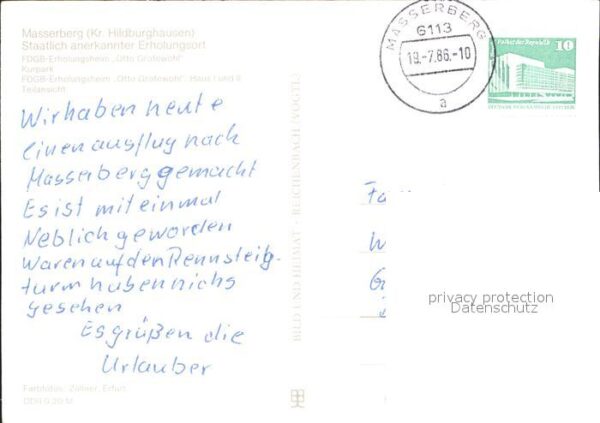 Masserberg (Kr. Hildburghausen)
Staatlich anerkannter Erholungsort
FDGB-Erholungsheim „Otto Grotewohl“
Kurpark
FDGB-Erholungsheim „Otto Grotewohl“, Haus I und II
Teilansicht
Wir haben heute
einen ausflug nach
Masserberg gemacht
Es ist mit einmal
Neblich geworden
waren auf den Rennsteig-
turm haben nichs
gesehen
Es grüßen die
Urlauber
Farbfotos: Zöllner, Erfurt
BILD UND HEIMAT · REICHENBACH (VOGTL)
MASSERBERG
6113
19.-7.86.-10
a
Palast der Republik
10
privacy protection
Datenschutz